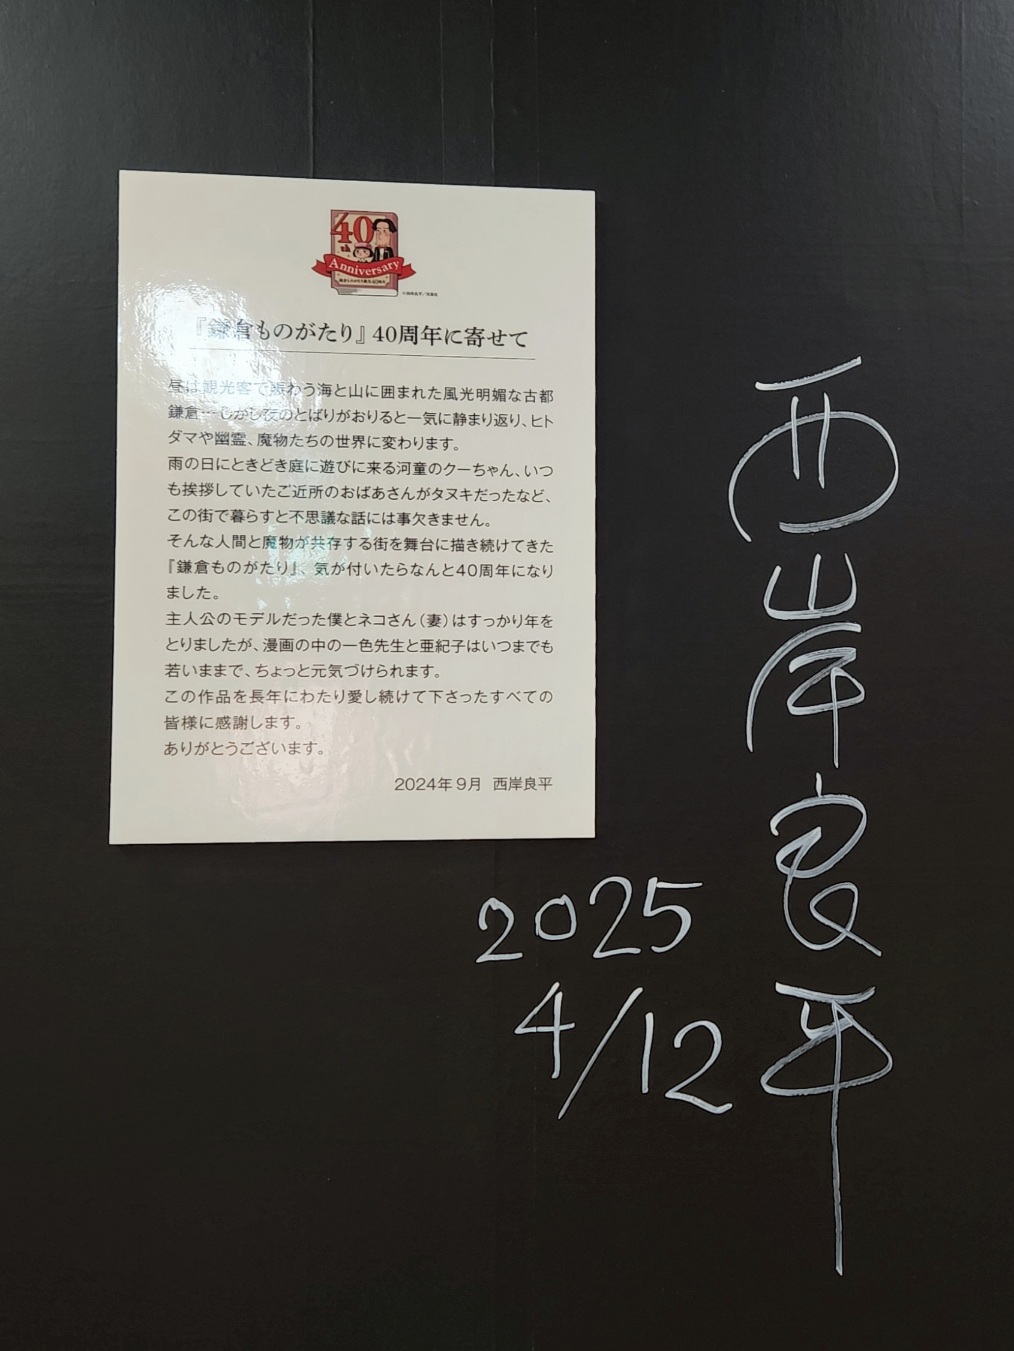 40
th
Anniversary
『鎌倉ものがたり』40周年に寄せて
昼は観光客で賑わう海と山に囲まれた風光明媚な古都
鎌倉…しかし夜のとばりがおりると一気に静まり返り、ヒト
ダマや幽霊、魔物たちの世界に変わります。
雨の日にときどき庭に遊びに来る河童のクーちゃん、いつ
も挨拶していたご近所のおばあさんがタヌキだったなど、
この街で暮らすと不思議な話には事欠きません。
そんな人間と魔物が共存する街を舞台に描き続けてきた
『鎌倉ものがたり』、気が付いたらなんと40周年になり
ました。
主人公のモデルだった僕とネコさん（妻）はすっかり年を
とりましたが、漫画の中の一色先生と亜紀子はいつまでも
若いままで、ちょっと元気づけられます。
この作品を長年にわたり愛し続けて下さったすべての
皆様に感謝します。
ありがとうございます。
2024年9月 西岸良平
西岸良平
2025
4/12